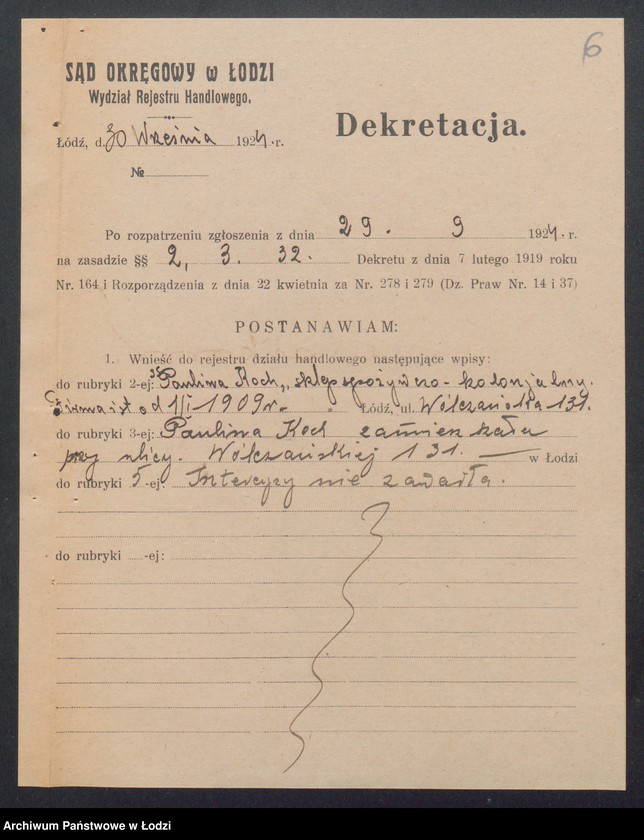 6
SĄD OKRĘGOWY w ŁODZI
Wydział Rejestru Handlowego.
Dekretacja.
Łódź, d. 30 Września 1924 r.
№
Po rozpatrzeniu zgłoszenia z dnia 29. 9 1924. r.
na zasadzie §§ 2, 3. 32. Dekretu z dnia 7 lutego 1919 roku
Nr. 164 i Rozporządzenia z dnia 22 kwietnia za Nr. 278 i 279 (Dz. Praw Nr. 14 i 37)
POSTANAWIAM:
1. Wnieść do rejestru działu handlowego następujące wpisy:
do rubryki 2-ej: "Paulina Koch", sklep spożywczo-kolonjalny.
Firma ist. od 1/I 1909 r. Łódź, ul. Wólczańska 131.
do rubryki 3-ej: Paulina Koch zamieszkała
przy ulicy. Wólczańskiej 131. — w Łodzi
do rubryki 5-ej: Intercyzy nie zawarła.
do rubryki -ej:
Archiwum Państwowe w Łodzi